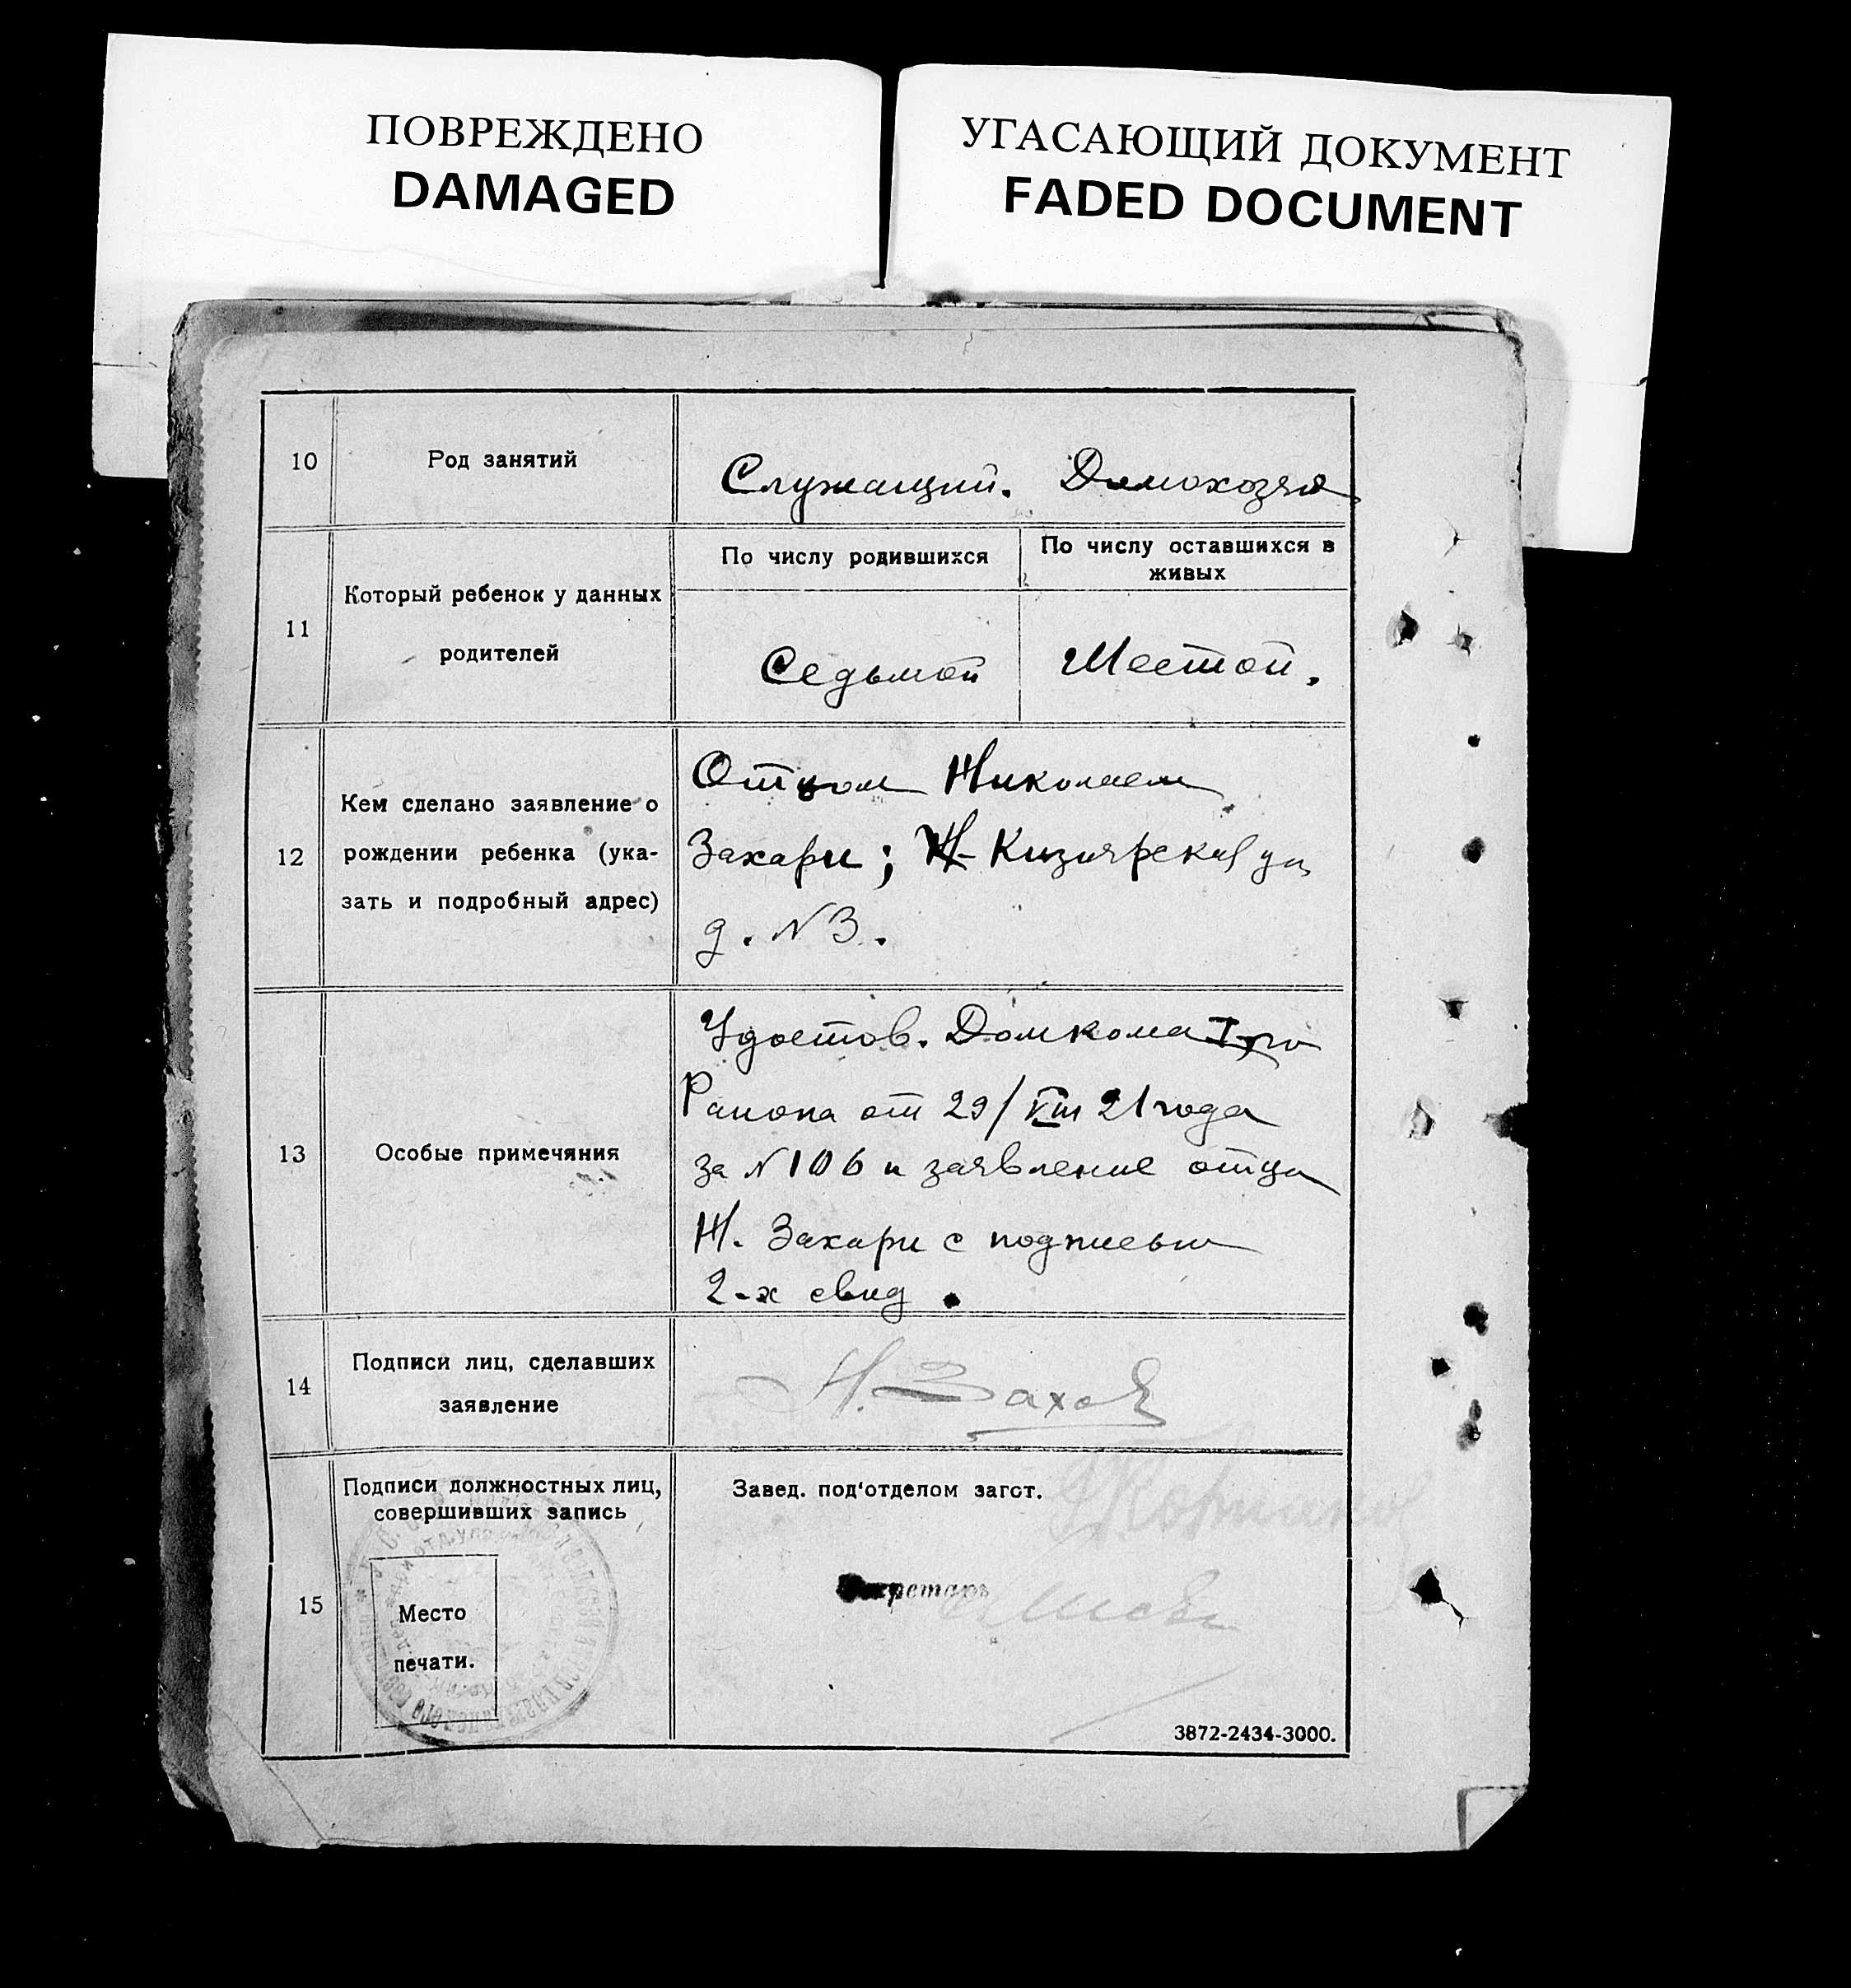 ПОВРЕЖДЕНО
DAMAGED
УГАСАЮЩИЙ ДОКУМЕНТ
FADED DOCUMENT
10
Род занятий
Служащий. Домохозя
11
Который ребенок у данных
родителей
По числу родившихся
По числу оставшихся в
живых
Седьмой
Шестой.
12
Кем сделано заявление о
рождении ребенка (ука-
зать и подробный адрес)
Отцом Николаем
Захари; Н-Кизиярская ул
д. N 3.
13
Особые примечяния
Удостов. Домкома I го
Раиона от 29/VIII 21 года
за N 106 и заявление отца
Н. Захари с подписью
2-х свид.
14
Подписи лиц, сделавших
заявление
Н. Заха
15
Подписи должностных лиц,
совершивших запись
Место
печати.
Завед. под'отделом загст.
Секретарь
3872-2434-3000.